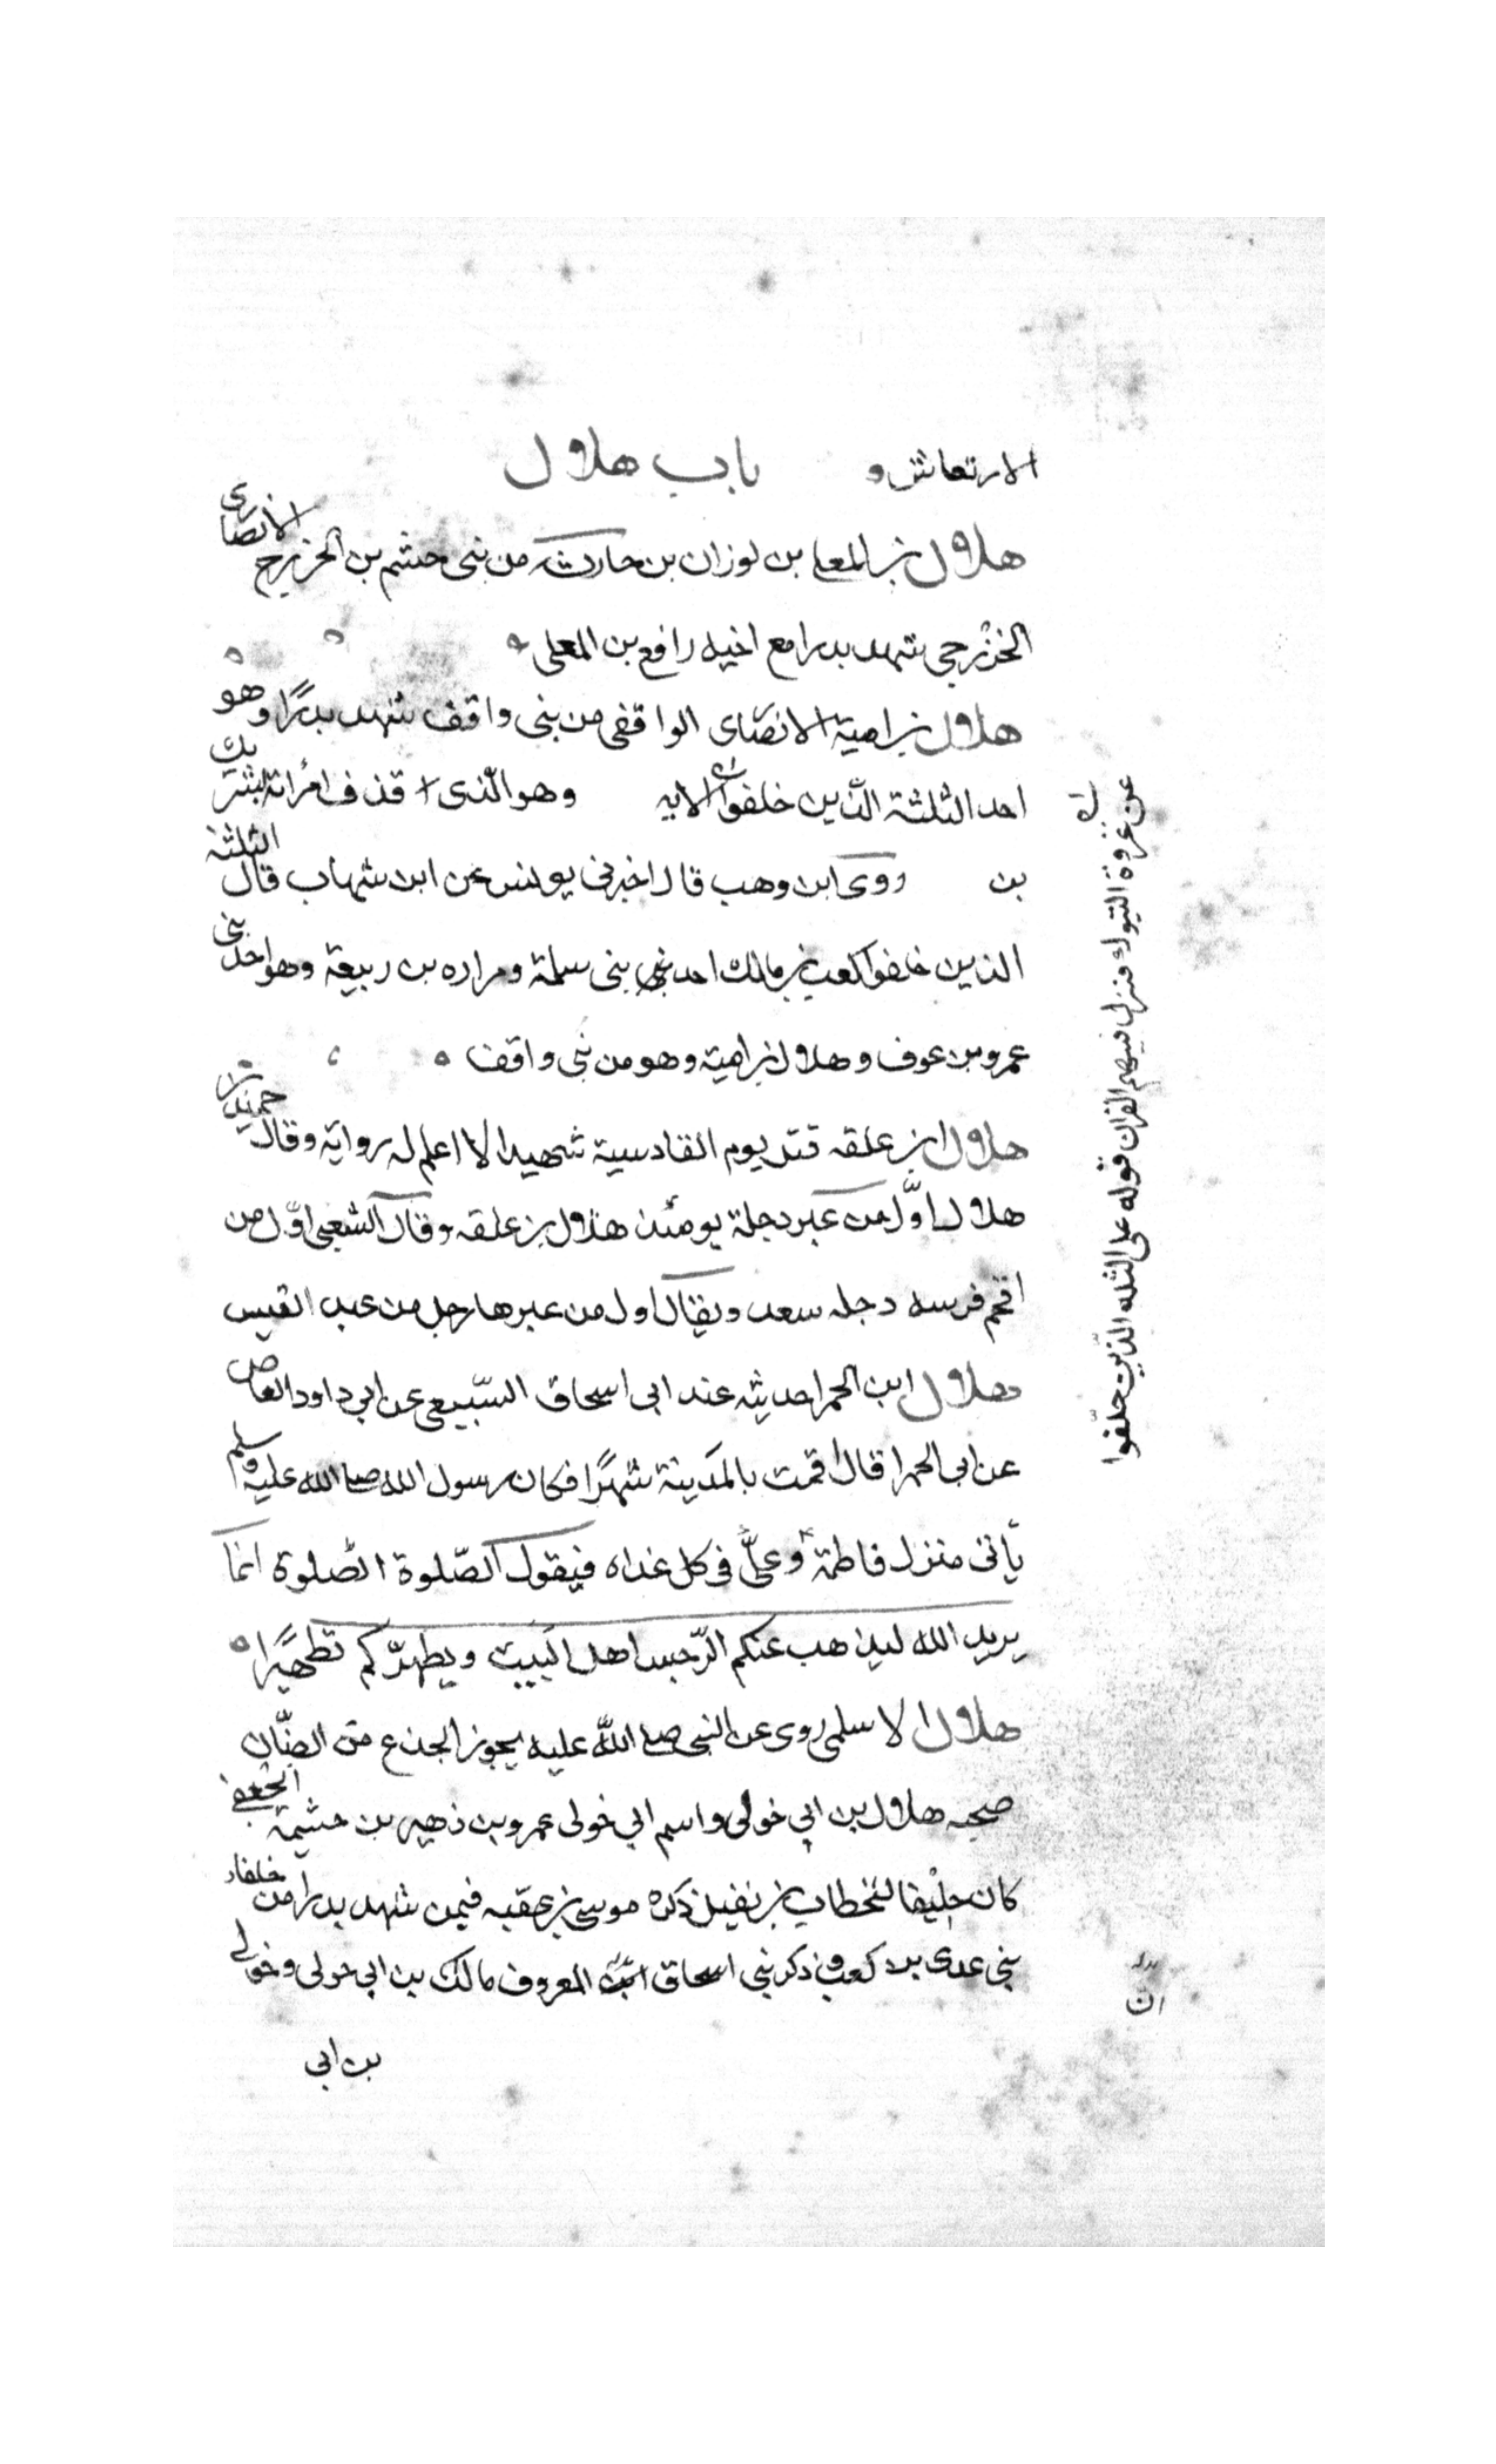 الارتعاش و باب هلال
هلال بن المعلى بن لوزان بن حارثة من بنى جشم بن الخزرج الانصارى
الخزرجى شهد بدرا مع اخيه رافع بن المعلى
هلال بن امية الانصاى الواقفى من بنى واقف شهد بدرًا وهو
احد الثلثة الذين خلفوا الايه وهو الّذى قذف امرأته بشريك
بن روى ابن وهب قال اخبرنى يونس عن ابن شهاب قال الثلثة
الذين خلفوا كعب بن مالك احد بنى سلمة ومراره بن ربيعة وهو احد بنى
عمرو بن عوف وهلال بن امية وهو من بنى واقف
هلال ابن علقه قتل يوم القادسية شهيدا لا اعلم له رواية وقال حميد بن
هلال اوّل من عبر دجلة يومئذ هلال بن علقه وقال الشعبى اوّل من
اقحم فرسه دجله سعد ويقال اول من عبرها رجل من عبد القيس
هلال ابن الحمرا حديثه عند ابى اسحاق السّبيعى عن ابى داود القاص
عن ابى الحمرا قال اقمت بالمدينة شهرًا فكان رسول الله صلى الله عليه وسلم
يأتى منزل فاطمة وعلىّ فى كل غداه فيقول الصّلوة الصّلوة انما
يريد الله ليذهب عنكم الرّجس اهل البيت ويطهرّكم تطهيرًا
هلال الاسلمى روى عن النبى صلى الله عليه يجوز الجذع من الضّان
صحبه هلال بن ابى خولى واسم ابى خولى عمرو بن زهير بن خثيمة الجعفى
كان حليفا للخطاب بن نفيل ذكره موسى بن عقبه فيمن شهد بدرا من حلفاء
بنى عدى بن كعب وذكر بنى اسحاق المعروف مالك بن ابى خولى وخولى
بن ابى
عن غزوة التبوك فنزل فيهم القران قوله على الثلثه الذّين خلّفوا